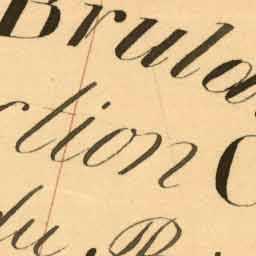 Brula
ction C
du R